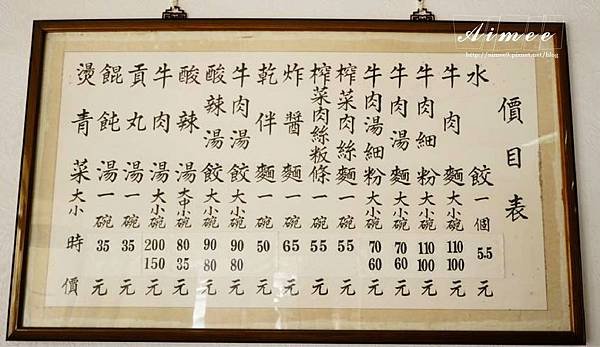 價目表
水餃一個 5.5 元
牛肉麵大小碗 110 100 元
牛肉細粉大小碗 110 100 元
牛肉湯麵大小碗 70 60 元
牛肉湯細粉大小碗 70 60 元
榨菜肉絲麵一碗 55 元
榨菜肉絲粄條一碗 55 元
炸醬麵一碗 65 元
乾伴麵一碗 50 元
牛肉湯餃大小碗 90 80 元
酸辣湯餃大小碗 90 80 元
酸辣湯大中小碗 80 35 元
牛肉湯大小碗 200 150 元
貢丸湯一碗 35 元
餛飩湯一碗 35 元
燙青菜大小 時價
Aimee
http://aimee9.pixnet.net/blog